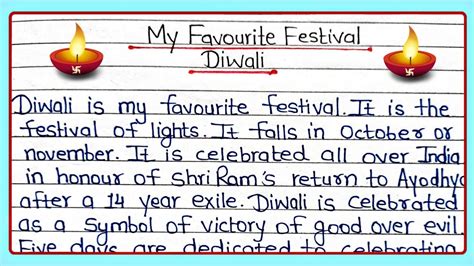 My Favourite Festival
Diwali
Diwali is my favourite festival. It is the
festival of lights. It falls in October or
november. It is celebrated all over India
in honour of Shri Ram's return to Ayodhya
after a 14 year exile. Diwali is celebrated
as a symbol of victory of good over evil.
Five days are dedicated to celebrating